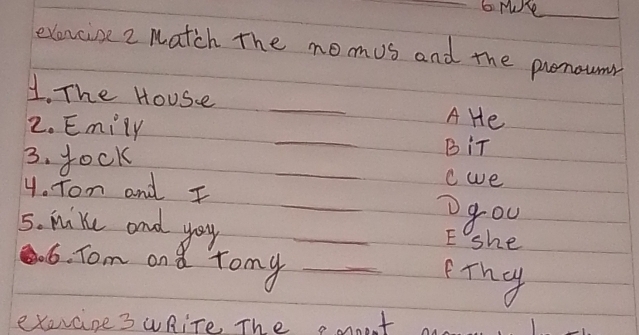 6 Mike
exercise 2 Match The nomus and the pronoums
1. The House A He
2. Emily B iT
3. Jock C we
4. Ton and I D you
5. Mike and yoy E she
6. Tom and Tomy F They
exercise 3 WRiTe The